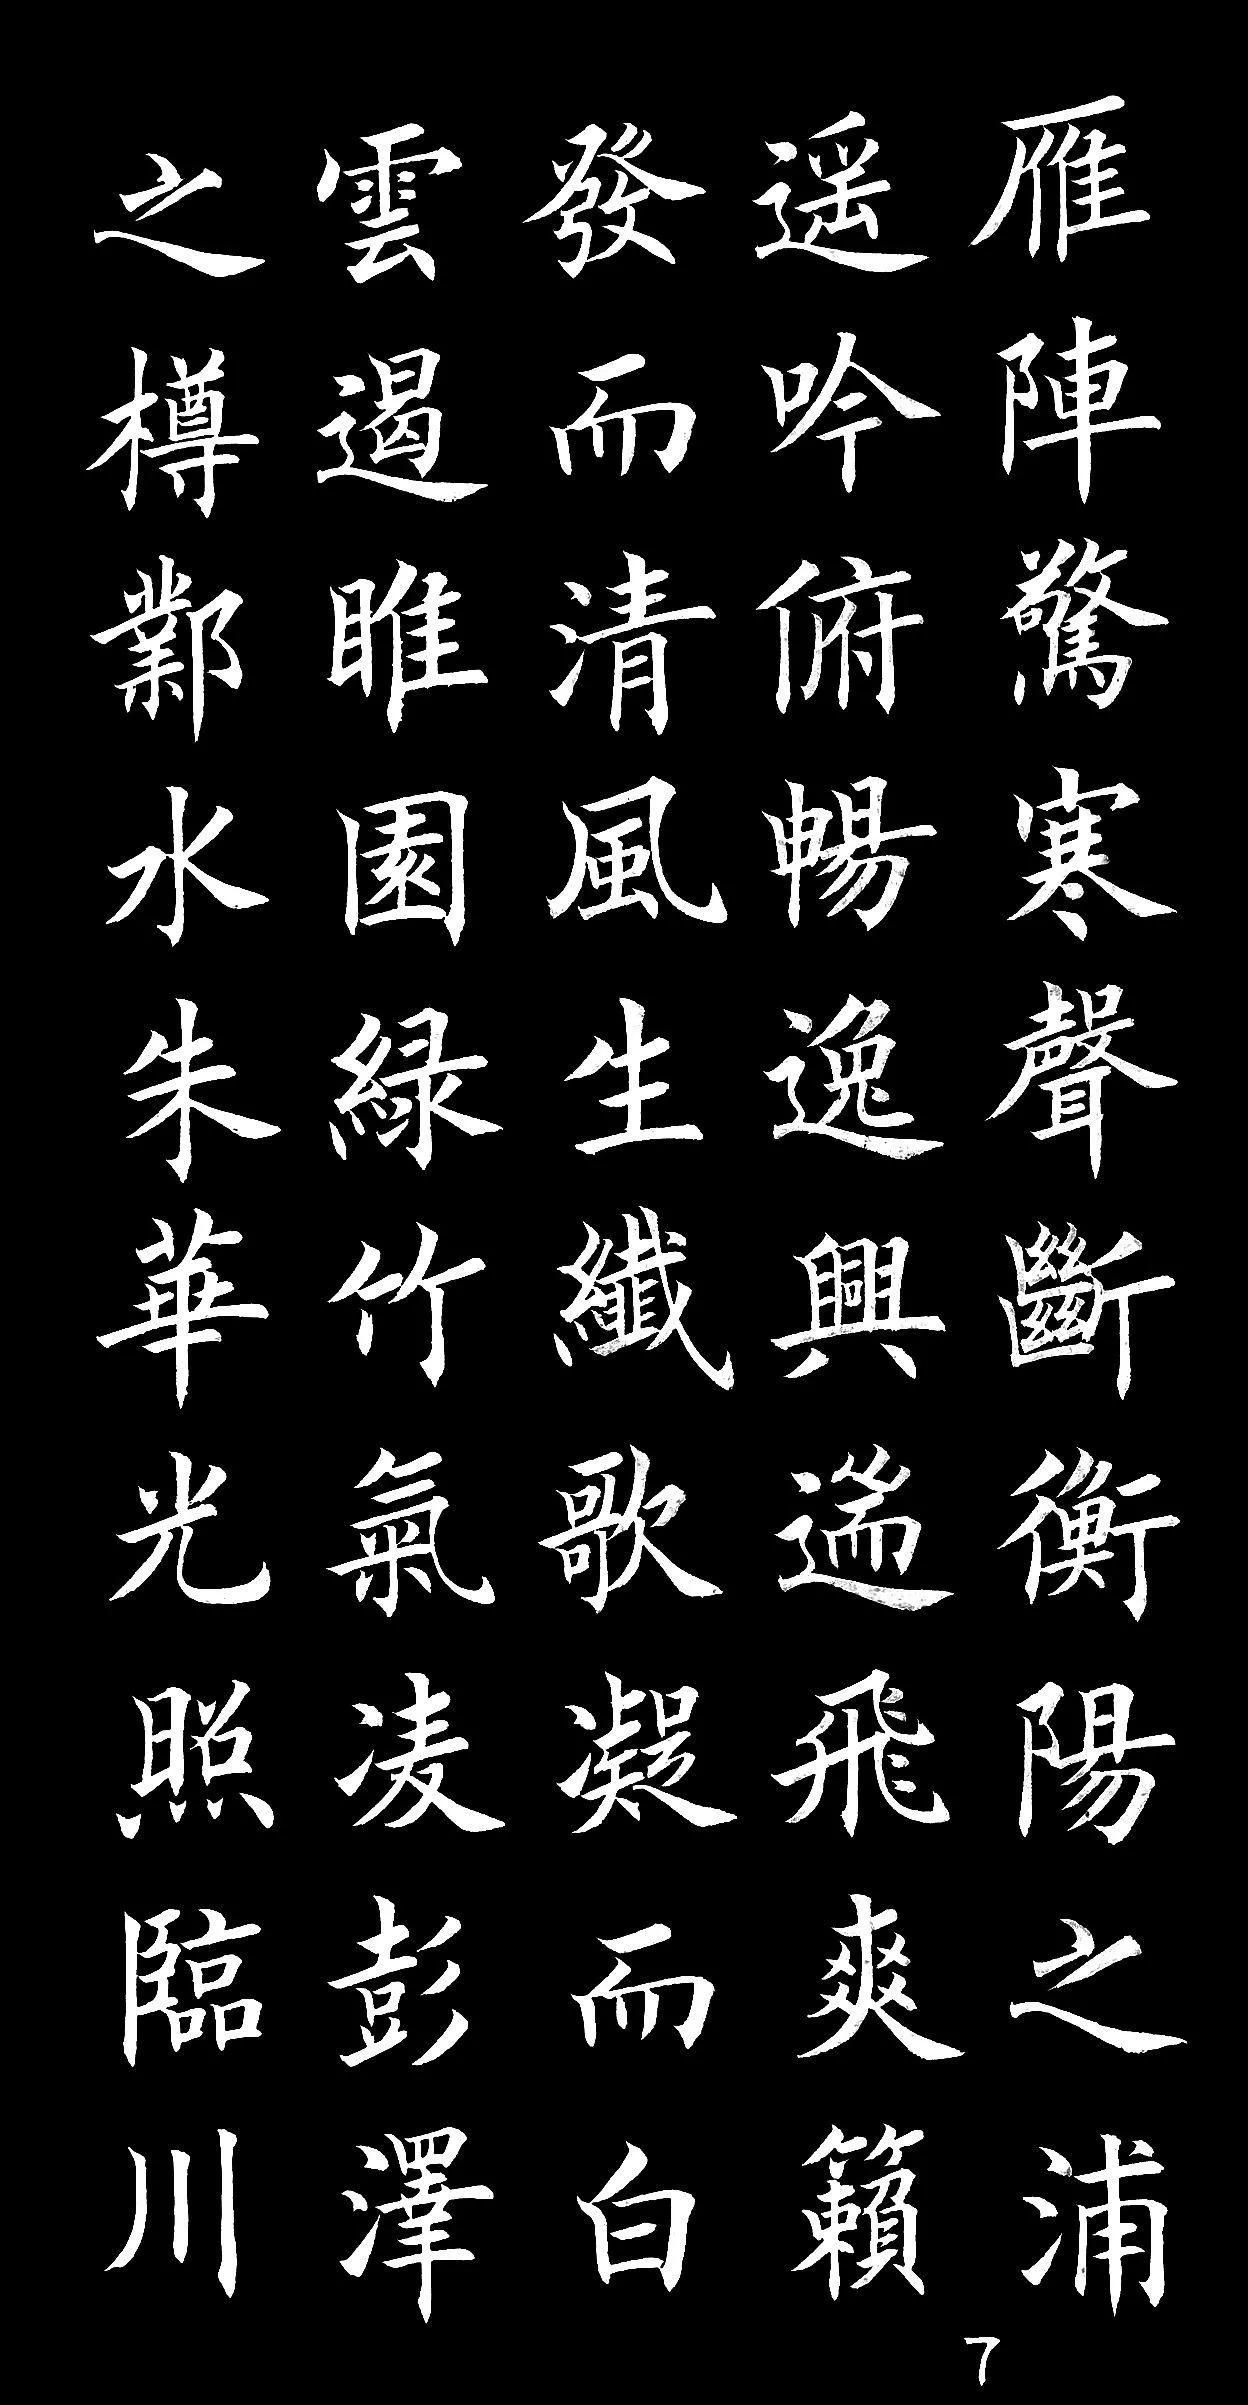 雁陣驚寒聲斷衡陽之浦
遥吟俯暢逸興遄飛爽籟
發而清風生纖歌凝而白
雲遏睢園緑竹氣凌彭澤
之樽鄴水朱華光照臨川
7